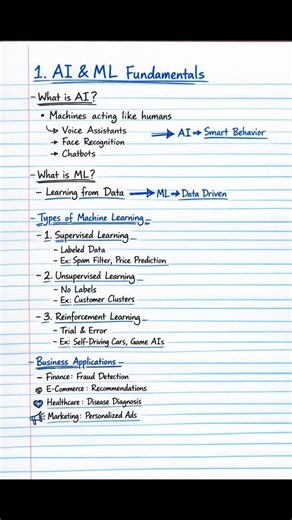 1. AI & ML Fundamentals
– What is AI?
• Machines acting like humans
↳ Voice Assistants
→ Face Recognition
→ Chatbots
AI → Smart Behavior
– What is ML?
– Learning from Data → ML → Data Driven
– Types of Machine Learning –
– 1. Supervised Learning –
– Labeled Data
– Ex: Spam Filter, Price Prediction
– 2. Unsupervised Learning –
– No Labels
– Ex: Customer Clusters
– 3. Reinforcement Learning –
– Trial & Error
– Ex: Self-Driving Cars, Game AIs
Business Applications –
– Finance: Fraud Detection
E-Commerce: Recommendations
Healthcare: Disease Diagnosis
Marketing: Personalized Ads